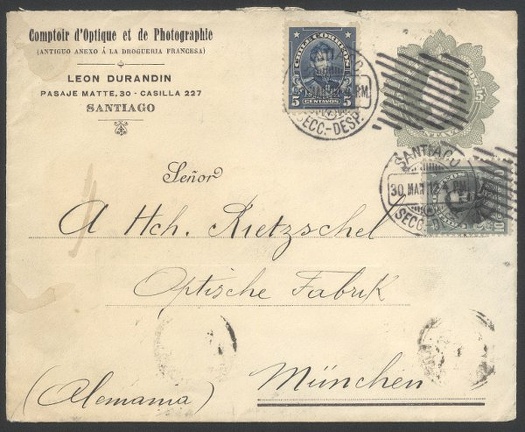 Comptoir d'Optique et de Photographie
(ANTIGUO ANEXO Á LA DROGUERIA FRANCESA)
LEON DURANDIN
PASAJE MATTE, 30 - CASILLA 227
SANTIAGO
CHILE CORREOS
5 CENTAVOS 5
SECC.-DESP.
15
SANTIAGO
30 MAR 12 4 PM
SECC-D
10
Señor
A Hch. Rietzschel
Optische Fabrik
München
(Alemania)